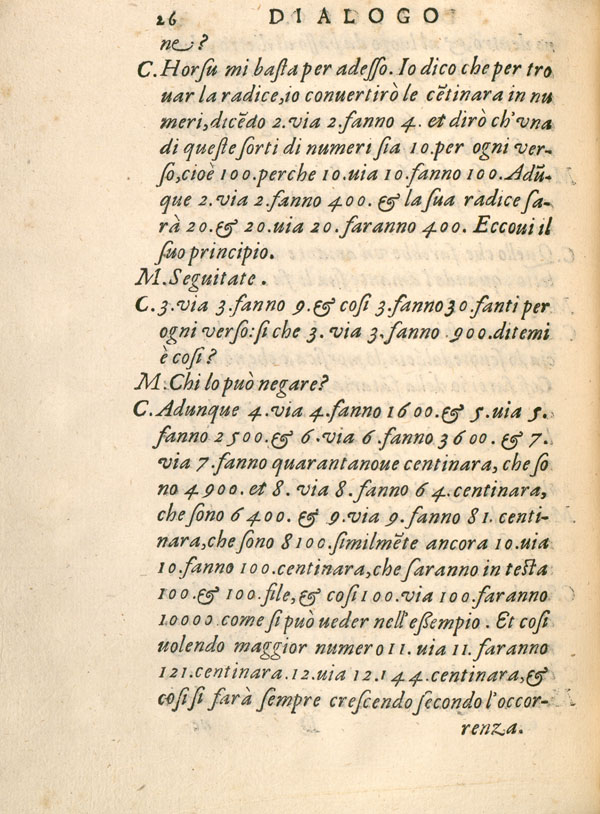 26 DIALOGO
ne?
C. Horſu mi baſta per adeſſo. Io dico che per tro
uar la radice, io conuertirò le cẽtinara in nu
meri, dicẽdo 2. via 2. fanno 4. et dirò ch'vna
di queſte ſorti di numeri ſia 10. per ogni ver-
ſo, cioè 100. perche 10. uia 10. fanno 100. Adũ-
que 2. via 2. fanno 400. & la sua radice ſa-
rà 20. & 20. uia 20. faranno 400. Eccoui il
ſuo principio.
M. Seguitate.
C. 3. via 3. fanno 9. & coſi 3. fanno 30. fanti per
ogni verſo: ſi che 3. via 3. fanno 900. ditemi
è coſi?
M. Chi lo può negare?
C. Adunque 4. via 4. fanno 1600. & 5. uia 5.
fanno 2500. & 6. via 6. fanno 3600. & 7.
via 7. fanno quarantanoue centinara, che ſo
no 4900. et 8. via 8. fanno 64. centinara,
che ſono 6400. & 9. via 9. fanno 81. centi-
nara, che ſono 8100. ſimilmẽte ancora 10. uia
10. fanno 100. centinara, che ſaranno in teſta
100. & 100. file, & coſi 100. via 100. faranno
10000. come ſi può ueder nell'eſſempio. Et coſi
uolendo maggior numero 11. uia 11. faranno
121. centinara. 12. uia 12. 144. centinara, &
coſi ſi farà sempre creſcendo ſecondo l'occor-
renza.